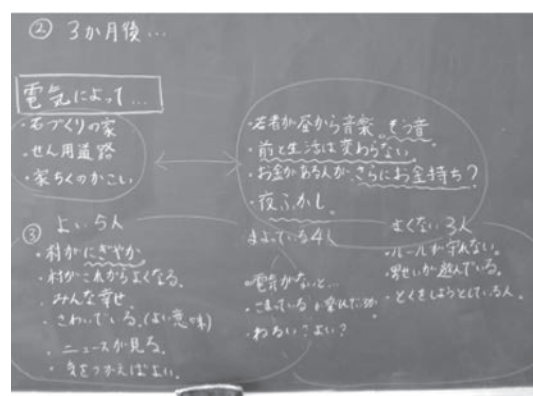 ② 3か月後…
電気によって…
・石づくりの家
・せん用道路
・家ちくのかこい
・若者が昼から音楽。そう音
・前と生活は変わらない。
・お金がある人が、さらにお金持ち？
・夜ふかし。
③ よい 5人
・村がにぎやか
・村がこれからよくなる。
・みんな幸せ。
・さわいでいる。(よい意味)
・ニュースが見る。
・気をつかえばよい。
まよっている4人
・電気がないと…
・こまっている
・わるい？よい？
よくない 3人
・ルールが守れない。
・男せいが遊んでいる。
・とくをしようとしている人。